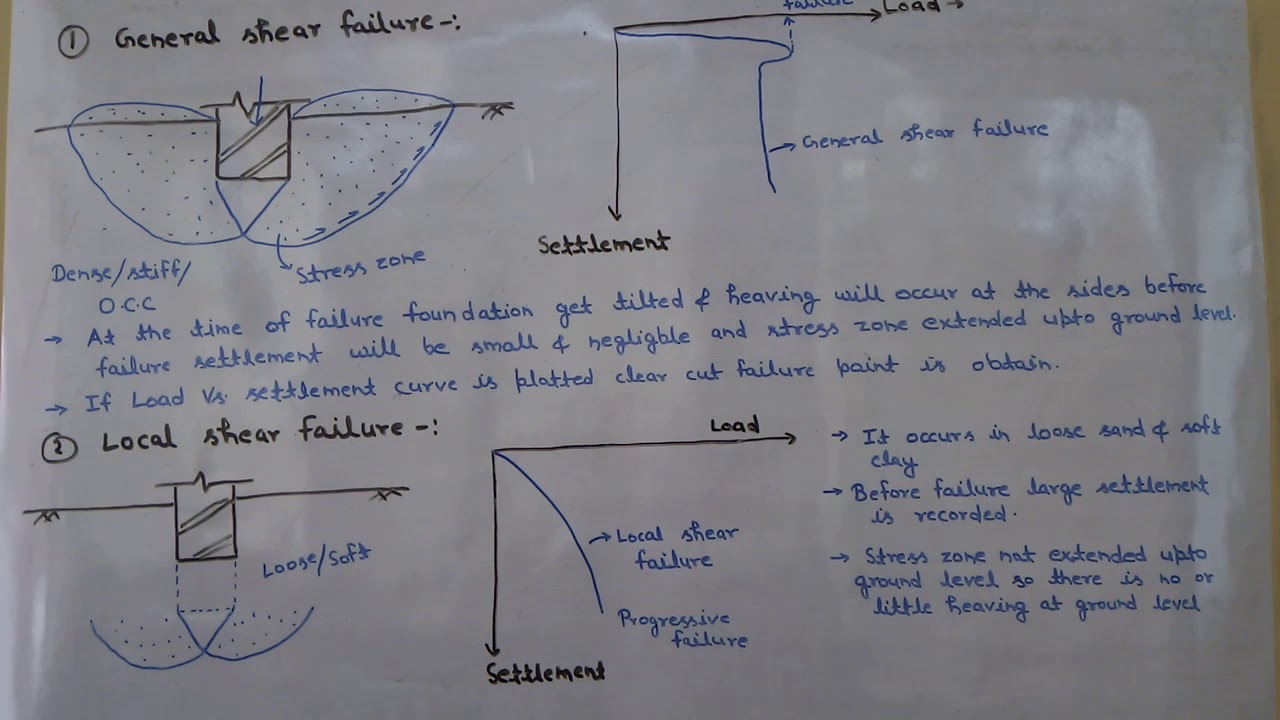 ① General shear failure -:
failure
Load →
→ General shear failure
Settlement
Stress zone
Dense/stiff/
O.C.C
→ At the time of failure foundation get tilted & heaving will occur at the sides before
failure settlement will be small & negligble and stress zone extended upto ground level.
→ If Load Vs. settlement curve is platted clear cut failure point is obtain.
② Local shear failure -:
Loose/Soft
Load
→ Local shear
failure
Progressive
failure
Settlement
→ It occurs in loose sand & soft
clay
→ Before failure large settlement
is recorded.
→ Stress zone not extended upto
ground level so there is no or
little heaving at ground level